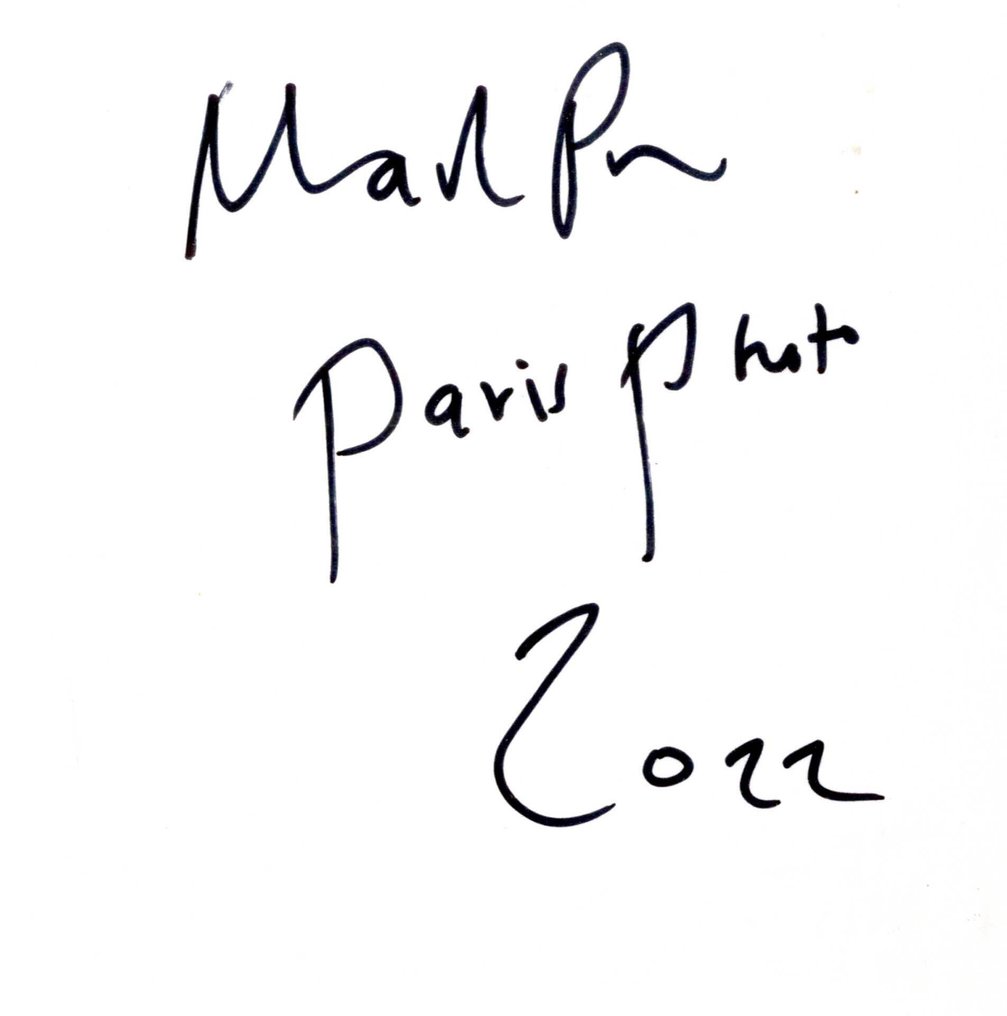 Mark
Paris Photo
2022